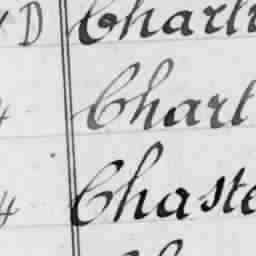 4 D Charti
4 Chart
4 Chaste